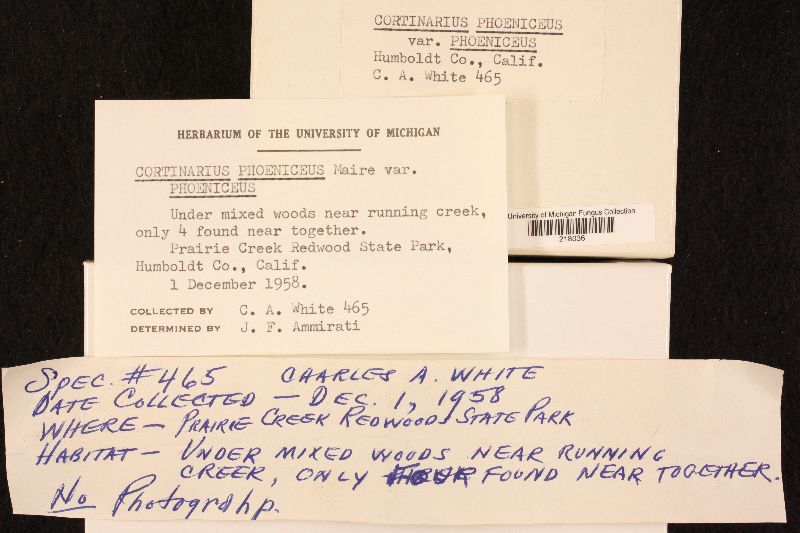 CORTINARIUS PHOENICEUS
var. PHOENICEUS
Humboldt Co., Calif.
C. A. White 465
HERBARIUM OF THE UNIVERSITY OF MICHIGAN
CORTINARIUS PHOENICEUS Maire var.
PHOENICEUS
Under mixed woods near running creek,
only 4 found near together.
Prairie Creek Redwood State Park,
Humboldt Co., Calif.
1 December 1958.
COLLECTED BY C. A. White 465
DETERMINED BY J. F. Ammirati
University of Michigan Fungus Collection
218036
SPEC. #465 CHARLES A. WHITE
DATE COLLECTED — DEC. 1, 1958
WHERE — PRAIRIE CREEK REDWOOD STATE PARK
HABITAT — UNDER MIXED WOODS NEAR RUNNING
CREEK, ONLY FOUR FOUND NEAR TOGETHER.
No Photograhp.